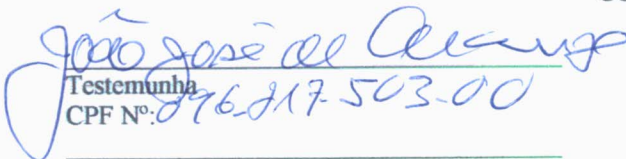 João José de
Testemunha
CPF Nº: 896.217.503-00